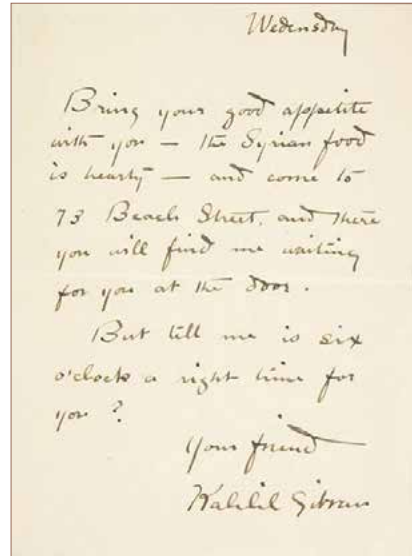 Wedensday
Bring your good appetite
with you — the Syrian food
is hearty — and come to
73 Beach Street, and there
you will find me waiting
for you at the door.
But tell me is six
o'clock a right time for
you?
Your friend
Kahlil Gibran